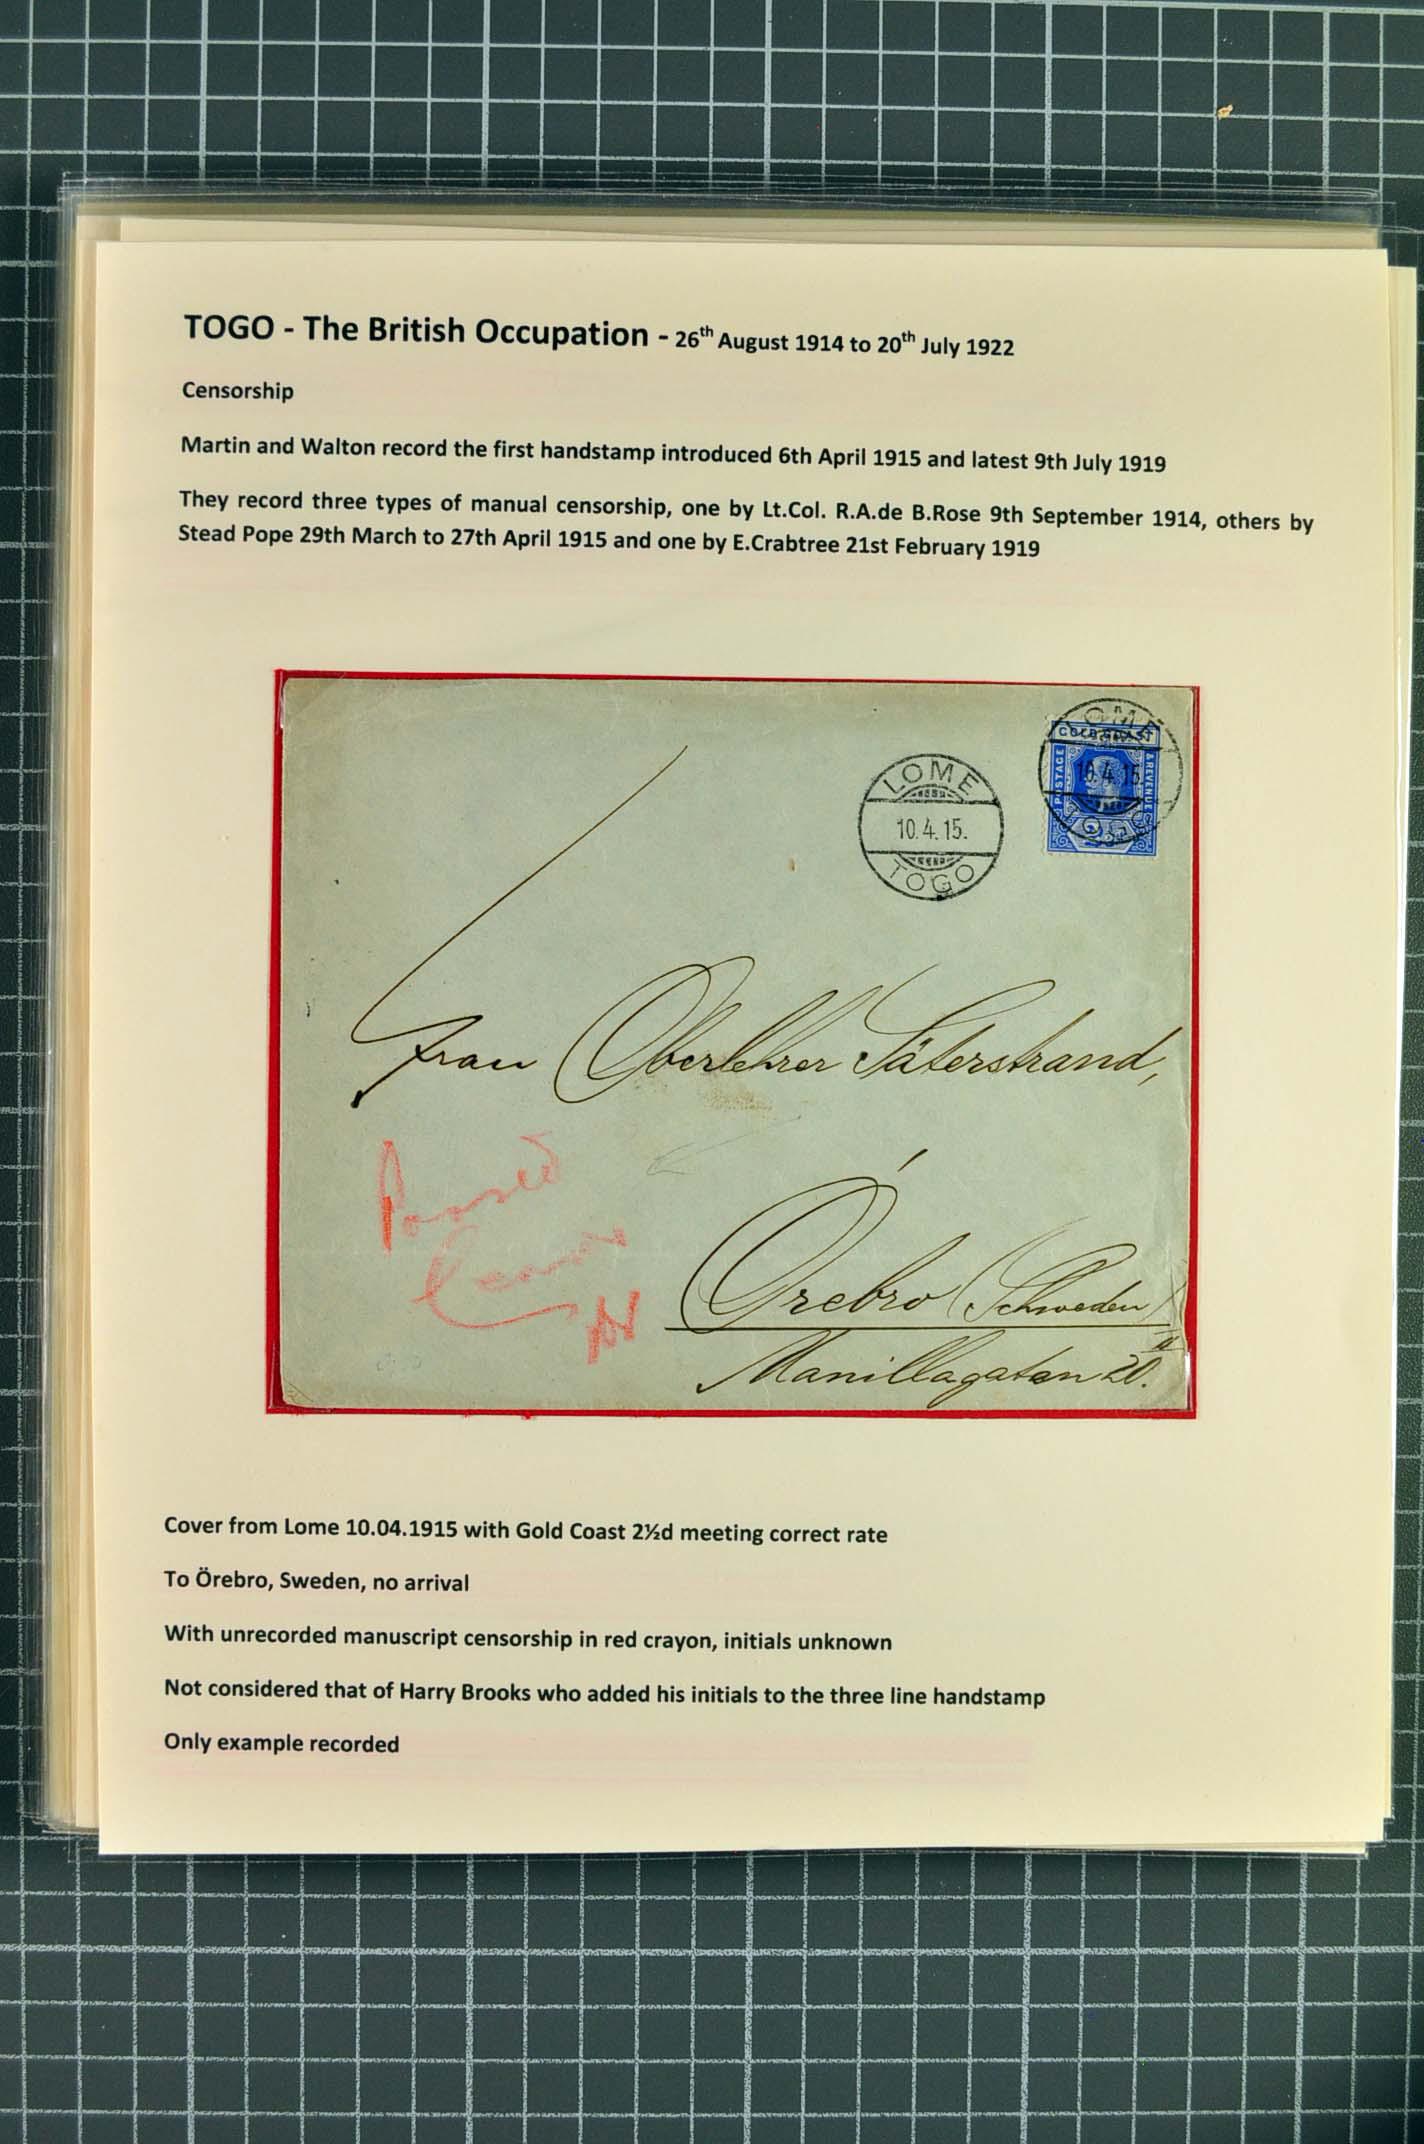 TOGO - The British Occupation - 26th August 1914 to 20th July 1922
Censorship
Martin and Walton record the first handstamp introduced 6th April 1915 and latest 9th July 1919
They record three types of manual censorship, one by Lt.Col. R.A.de B.Rose 9th September 1914, others by
Stead Pope 29th March to 27th April 1915 and one by E.Crabtree 21st February 1919
LOME
10.4.15.
TOGO
LOME
GOLD COAST
POSTAGE
& REVENUE
10.4.15.
TOGO
Frau Oberlehrer Säterstrand,
Passed
Censor
Örebro (Schweden)
Manillagatan 20.II
Cover from Lome 10.04.1915 with Gold Coast 2½d meeting correct rate
To Örebro, Sweden, no arrival
With unrecorded manuscript censorship in red crayon, initials unknown
Not considered that of Harry Brooks who added his initials to the three line handstamp
Only example recorded